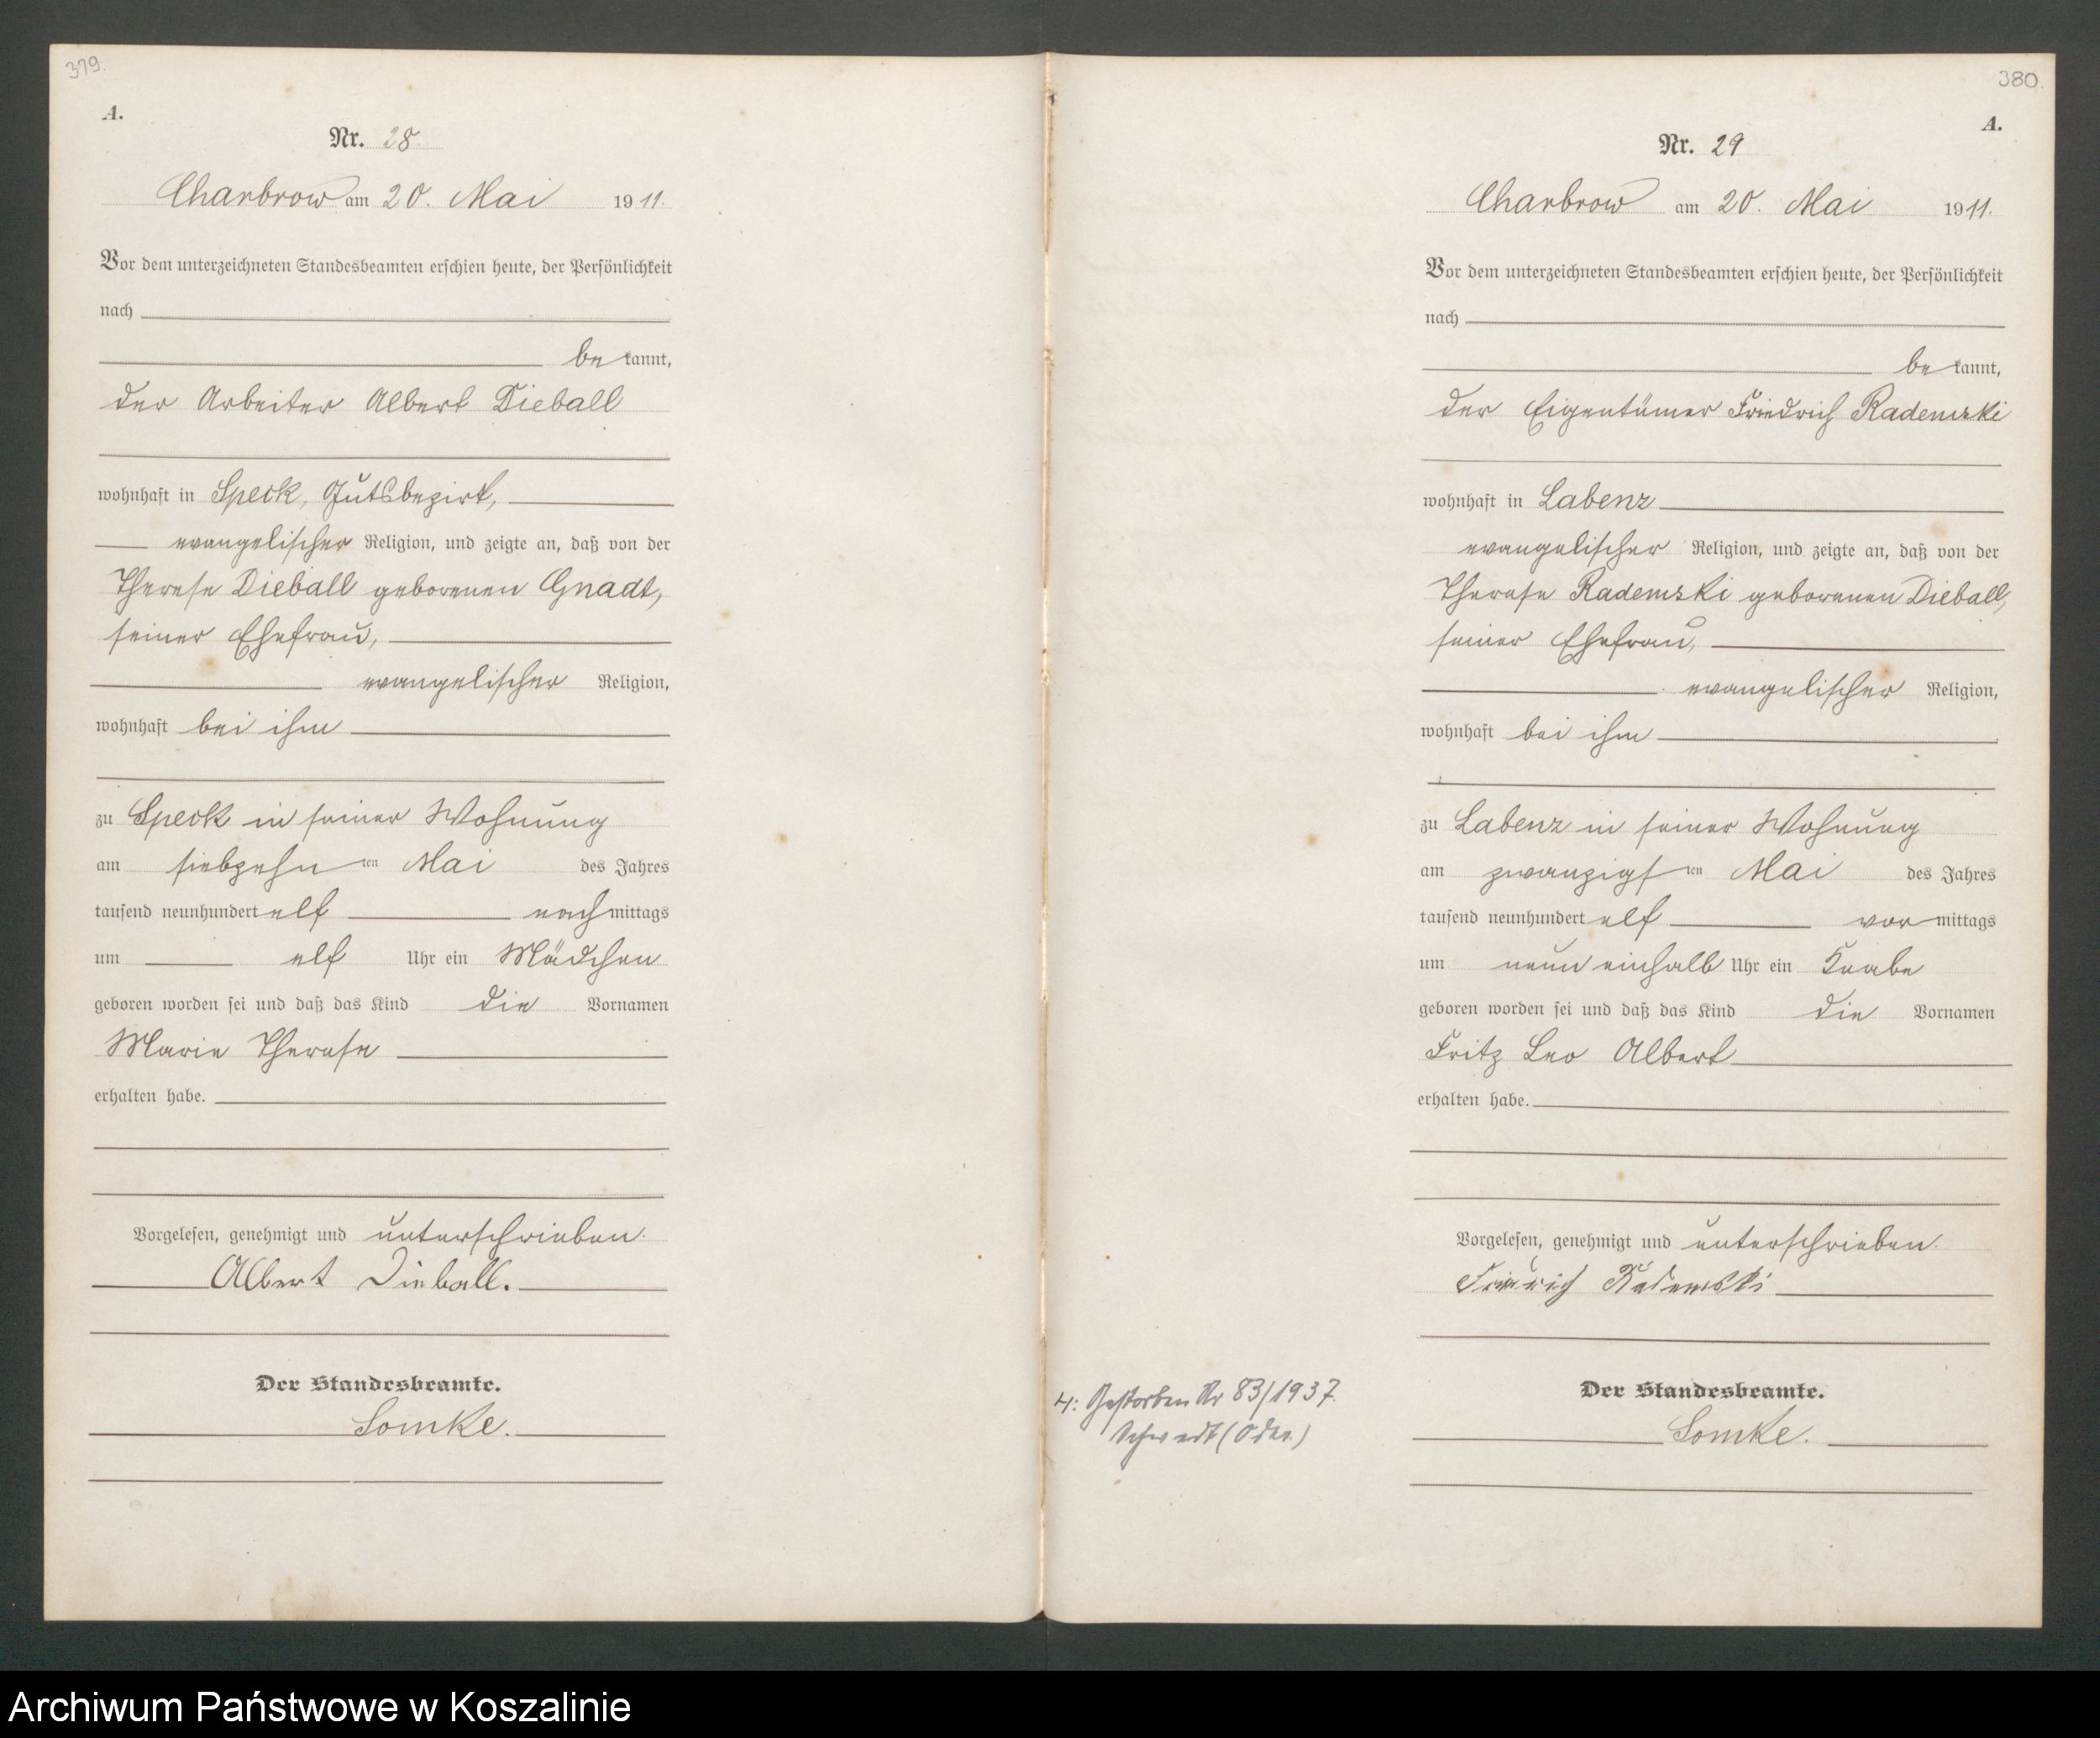 379.
A.
Nr. 28.
Charbrow am 20. Mai 1911.
Vor dem unterzeichneten Standesbeamten erschien heute, der Persönlichkeit
nach
be kannt,
der Arbeiter Albert Dieball
wohnhaft in Speck, Gutsbezirk,
evangelischer Religion, und zeigte an, daß von der
Therese Dieball geborenen Gnadt,
seiner Ehefrau,
evangelischer Religion,
wohnhaft bei ihm
zu Speck in seiner Wohnung
am siebzehn ten Mai des Jahres
tausend neunhundert elf nach mittags
um elf Uhr ein Mädchen
geboren worden sei und daß das Kind die Vornamen
Marie Therese
erhalten habe.
Vorgelesen, genehmigt und unterschrieben.
Albert Dieball.
Der Standesbeamte.
Somke.
380.
A.
Nr. 29
Charbrow am 20. Mai 1911.
Vor dem unterzeichneten Standesbeamten erschien heute, der Persönlichkeit
nach
be kannt,
der Eigentümer Friedrich Rademski
wohnhaft in Labenz
evangelischer Religion, und zeigte an, daß von der
Therese Rademski geborenen Dieball,
seiner Ehefrau,
evangelischer Religion,
wohnhaft bei ihm
zu Labenz in seiner Wohnung
am zwanzigs ten Mai des Jahres
tausend neunhundert elf vor mittags
um neun einhalb Uhr ein Knabe
geboren worden sei und daß das Kind die Vornamen
Fritz Leo Albert
erhalten habe.
Vorgelesen, genehmigt und unterschrieben.
Friedrich Rademski
Der Standesbeamte.
Somke.
4: Gestorben Nr 83/1937.
Schwedt (Oder.)
Archiwum Państwowe w Koszalinie